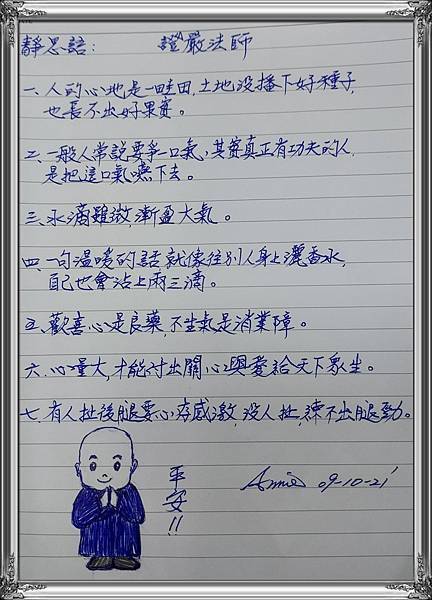 靜思語： 證嚴法師
一、人的心地是一畦田，土地沒播下好種子，
也長不出好果實。
二、一般人常說要爭一口氣，其實真正有功夫的人，
是把這口氣嚥下去。
三、水滴雖微，漸盈大氣。
四、一句溫暖的話就像往別人身上灑香水，
自己也會沾上兩三滴。
五、歡喜心是良藥，不生氣是消業障。
六、心量大，才能付出關心與愛給天下眾生。
七、有人扯後腿要心存感激，沒人扯，練不出腿勁。
平安!!
Annie 09-10-21'